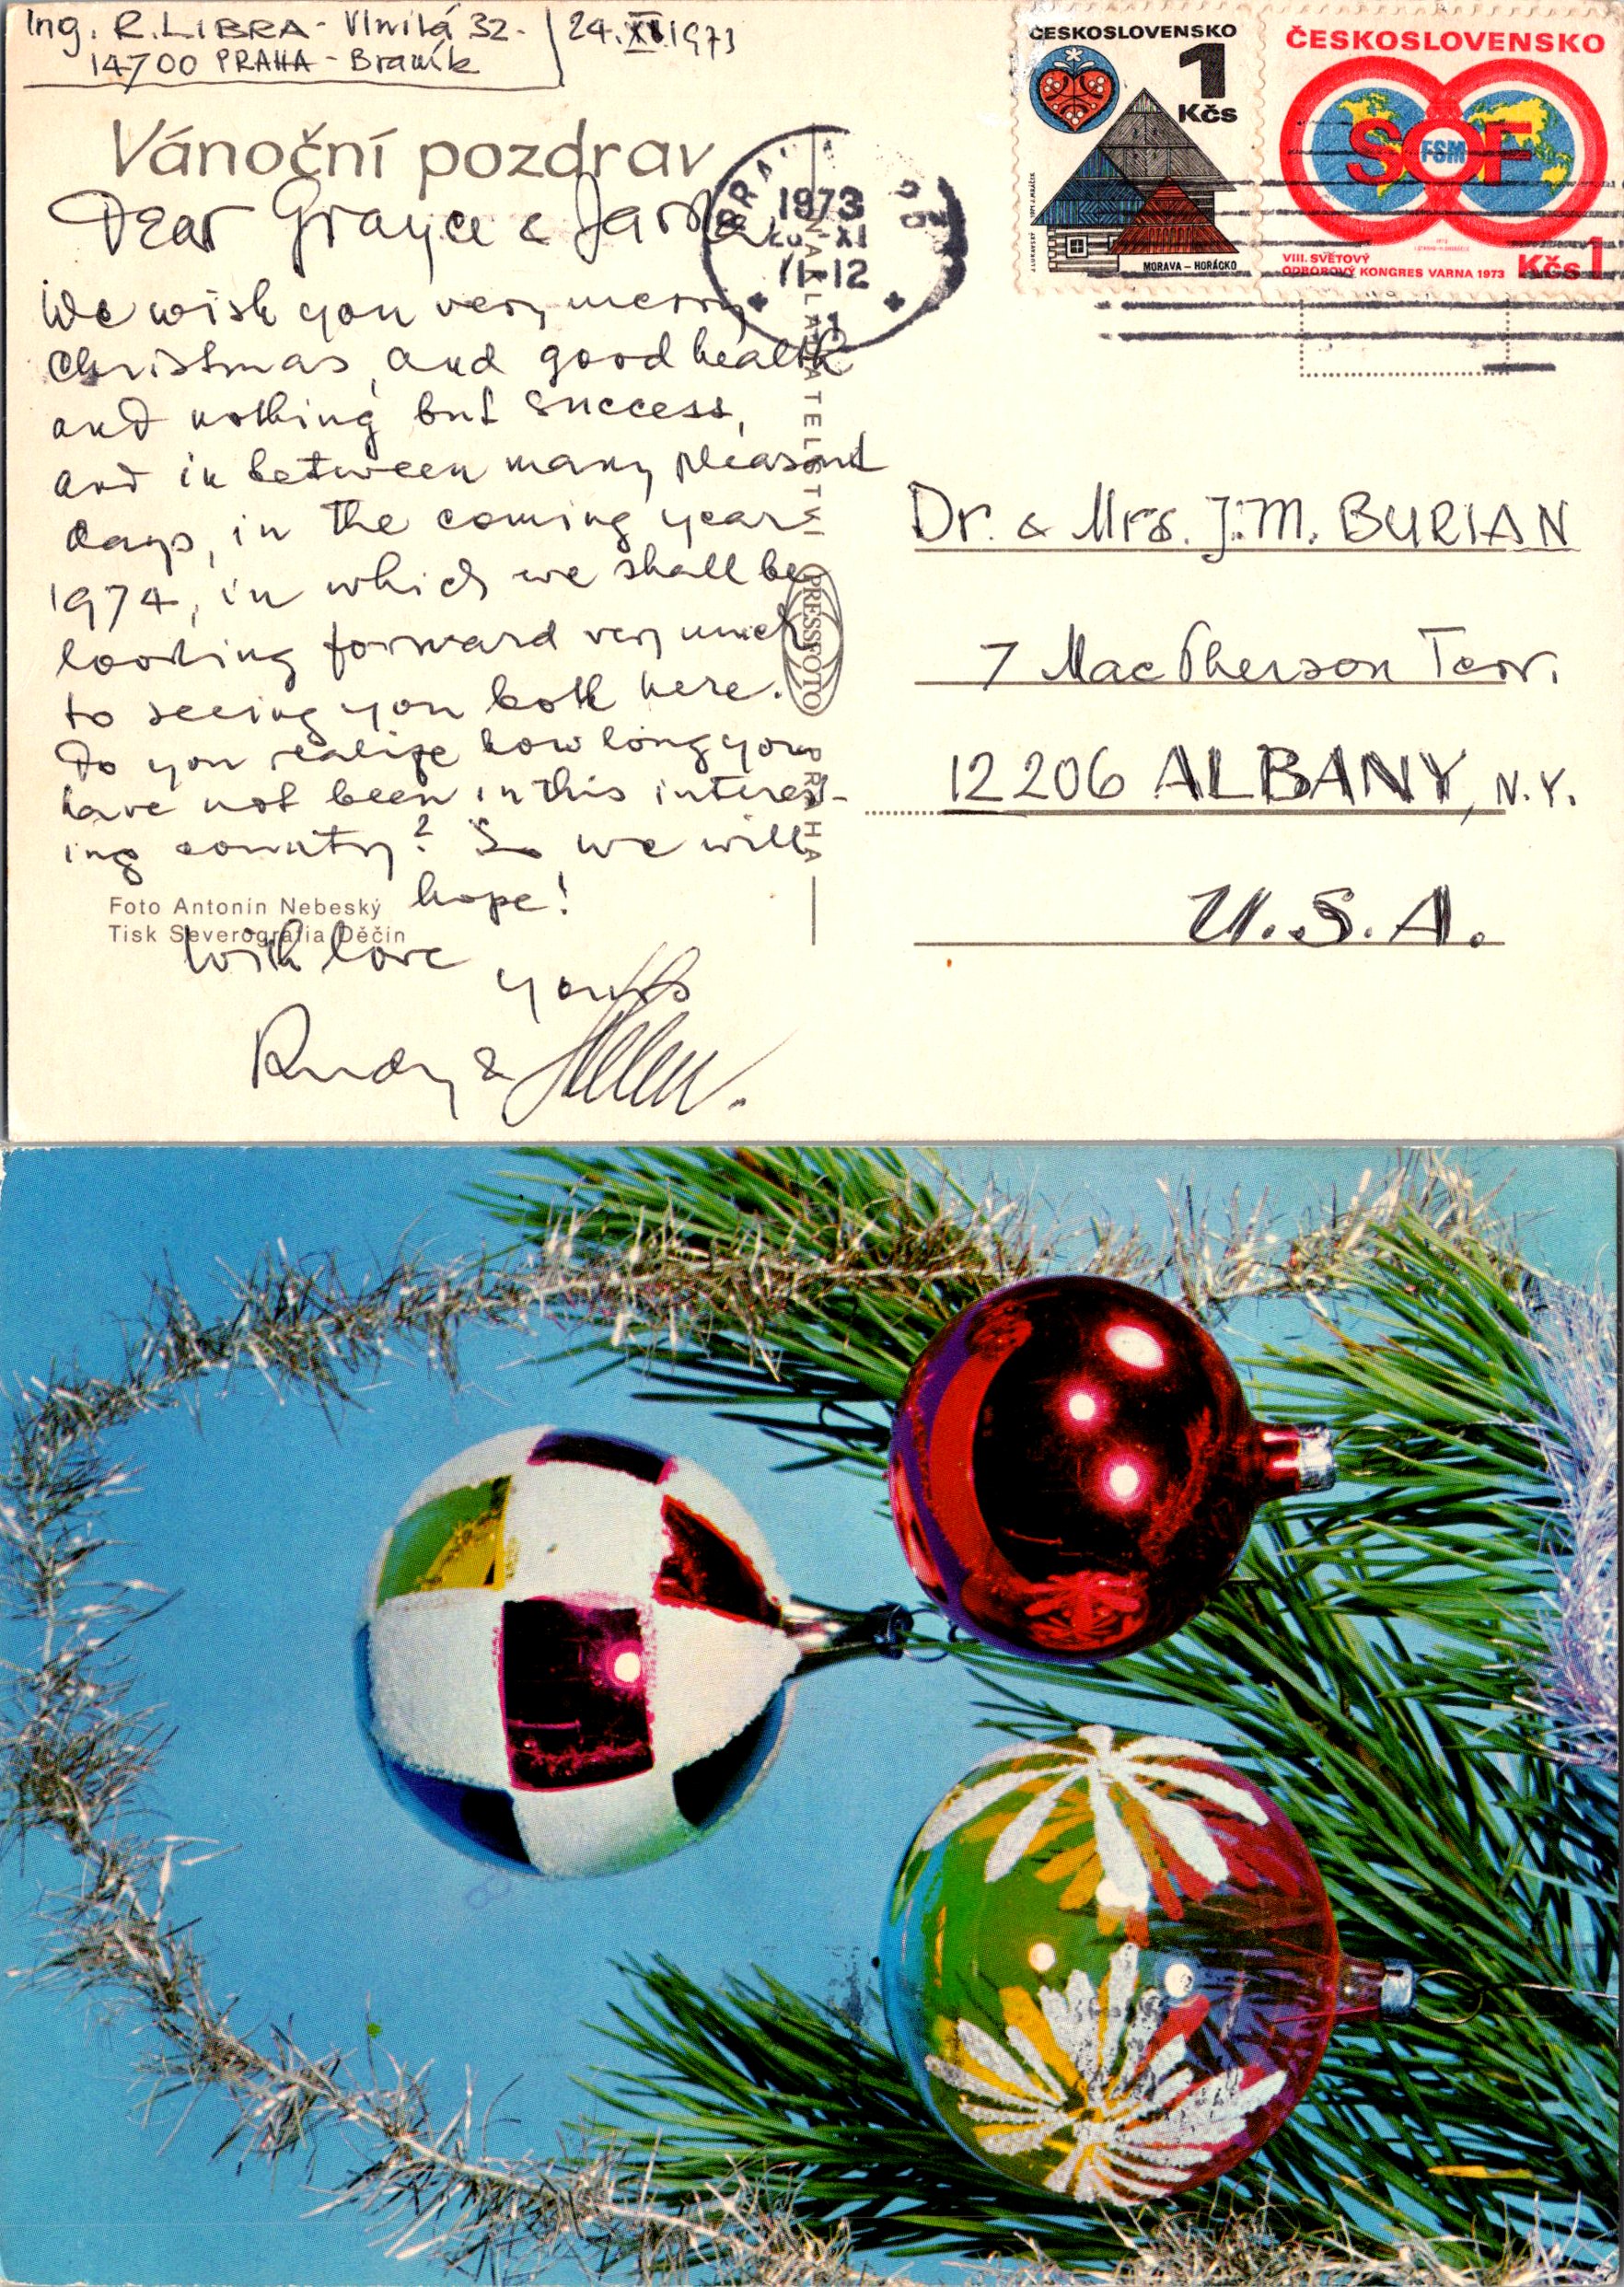 Ing. R. LIBRA - Vlnitá 32.
14700 PRAHA - Braník
24.XI.1973
Vánoční pozdrav
Dear Grayce & Jarda,
We wish you very merry
Christmas, and good health
and nothing but success,
and in between many pleasant
days, in the coming year
1974, in which we shall be
looking forward very much
to seeing you both here.
Do you realize how long you
have not been in this interest-
ing country? So we will
hope!
With love yours
Rudy & Hellen.
Foto Antonín Nebeský
Tisk Severografia Děčín
NAKLADATELSTVÍ PRESSFOTO PRAHA
1973
-XI
11-12
ČESKOSLOVENSKO
1
Kčs
MORAVA – HORÁCKO
ČESKOSLOVENSKO
SOF
FSM
VIII. SVĚTOVÝ
ODBOROVÝ KONGRES VARNA 1973
Kčs 1
Dr. & Mrs. J.M. BURIAN
7 MacPherson Terr.
12206 ALBANY, N.Y.
U.S.A.